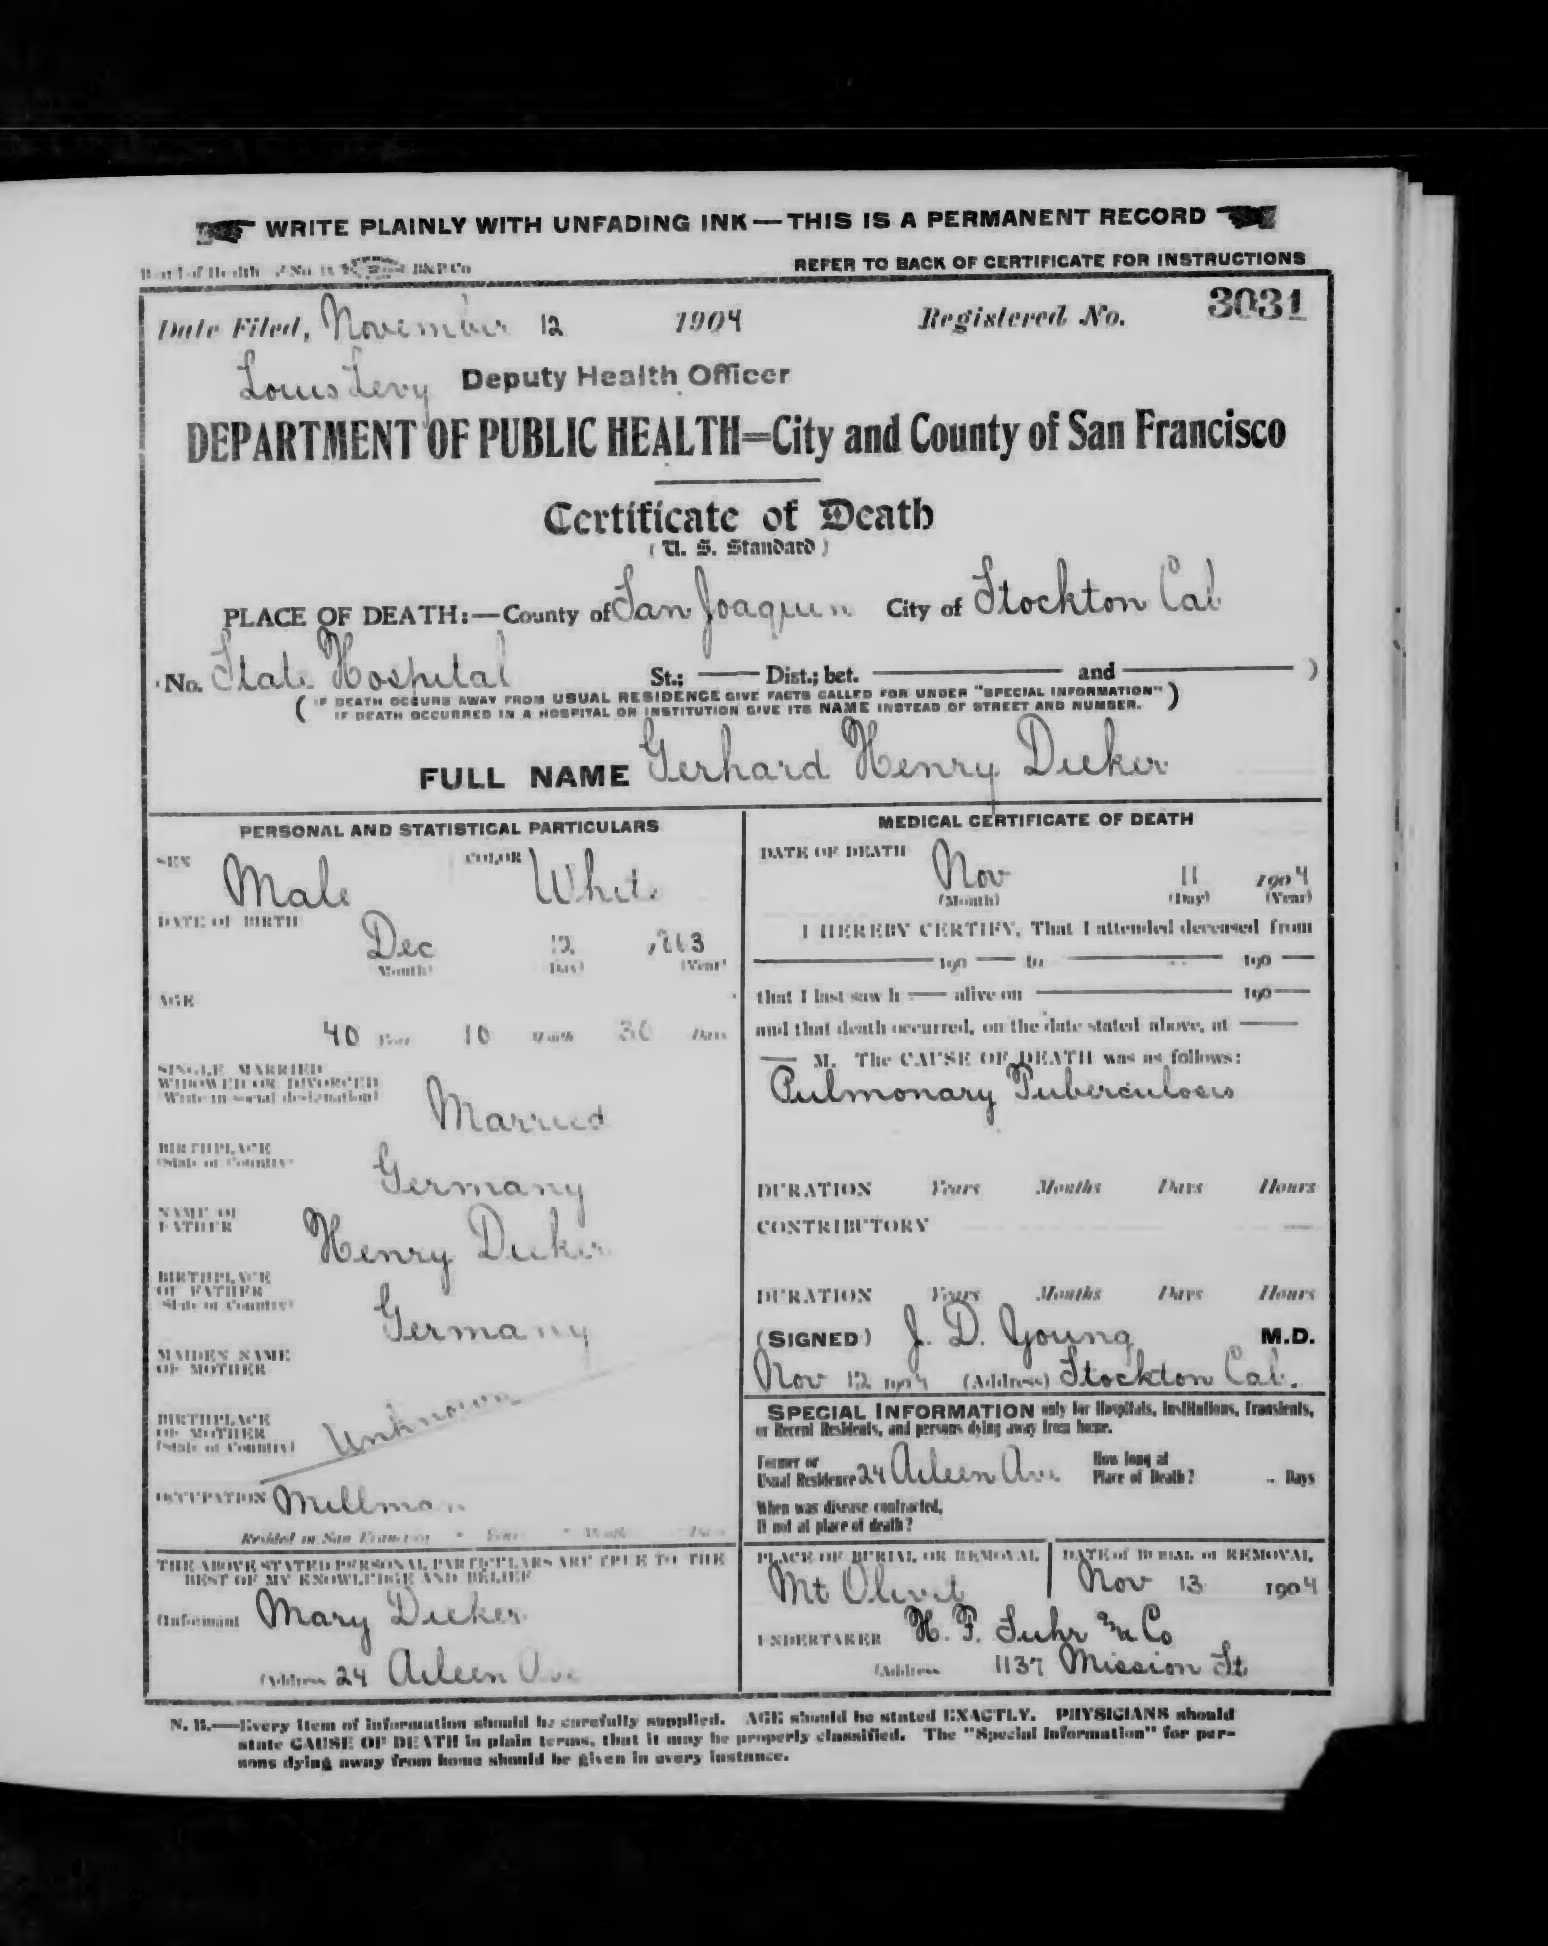 WRITE PLAINLY WITH UNFADING INK — THIS IS A PERMANENT RECORD
Board of Health B&P Co
REFER TO BACK OF CERTIFICATE FOR INSTRUCTIONS
Date Filed, November 12 1904 Registered No. 3031
Louis Levy Deputy Health Officer
DEPARTMENT OF PUBLIC HEALTH=City and County of San Francisco
Certificate of Death
(U. S. Standard)
PLACE OF DEATH:—County of San Joaquin City of Stockton Cal
No. State Hospital St.; — Dist.; bet. — and — )
( IF DEATH OCCURS AWAY FROM USUAL RESIDENCE GIVE FACTS CALLED FOR UNDER "SPECIAL INFORMATION" )
IF DEATH OCCURRED IN A HOSPITAL OR INSTITUTION GIVE ITS NAME INSTEAD OF STREET AND NUMBER.
FULL NAME Gerhard Henry Dieker
PERSONAL AND STATISTICAL PARTICULARS
SEX Male COLOR White
DATE OF BIRTH
Dec 12 1863
(Month) (Day) (Year)
AGE
40 Years 10 Months 30 Days
SINGLE, MARRIED
WIDOWED OR DIVORCED
(Write in social designation)
Married
BIRTHPLACE
(State or Country)
Germany
NAME OF
FATHER
Henry Dieker
BIRTHPLACE
OF FATHER
(State or Country)
Germany
MAIDEN NAME
OF MOTHER
BIRTHPLACE
OF MOTHER
(State or Country)
Unknown
OCCUPATION Millman
Resided in San Francisco Years Months Days
THE ABOVE STATED PERSONAL PARTICULARS ARE TRUE TO THE
BEST OF MY KNOWLEDGE AND BELIEF
(Informant Mary Dieker
(Address 24 Aileen Ave
MEDICAL CERTIFICATE OF DEATH
DATE OF DEATH
Nov 11 1904
(Month) (Day) (Year)
I HEREBY CERTIFY, That I attended deceased from
— 190 — to — 190 —
that I last saw h — alive on — 190 —
and that death occurred, on the date stated above, at —
— M. The CAUSE OF DEATH was as follows:
Pulmonary Tuberculosis
DURATION Years Months Days Hours
CONTRIBUTORY
DURATION Years Months Days Hours
(SIGNED) J. D. Young M.D.
Nov 12 1904 (Address) Stockton Cal.
SPECIAL INFORMATION only for Hospitals, Institutions, Transients,
or Recent Residents, and persons dying away from home.
Former or
Usual Residence 24 Aileen Ave
How long at
Place of Death? Days
When was disease contracted,
If not at place of death?
PLACE OF BURIAL OR REMOVAL
Mt Olivet
DATE of BURIAL or REMOVAL
Nov 13 1904
UNDERTAKER H. F. Suhr & Co
(Address 1137 Mission St
N. B.—Every item of information should be carefully supplied. AGE should be stated EXACTLY. PHYSICIANS should
state CAUSE OF DEATH in plain terms, that it may be properly classified. The "Special Information" for per-
sons dying away from home should be given in every instance.